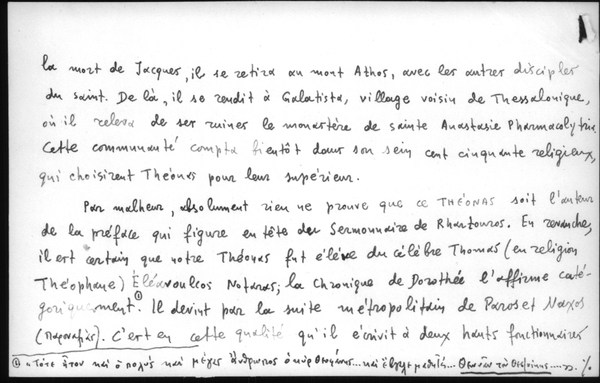 la mort de Jacques, il se retira au mont Athos, avec les autres disciples
du saint. De là, il se rendit à Galatista, village voisin de Thessalonique,
où il releva de ser ruiner le monastère de sainte Anastasie Pharmacolytria.
Cette communauté compta bientôt dans son sein cent cinquante religieux,
qui choisirent Théonas pour leur supérieur.
Par malheur, absolument rien ne prouve que ce THÉONAS soit l'auteur
de la préface qui figure en tête du Sermonnaire de Rhartouros. En revanche,
il est certain que notre Théonas fut élève du célèbre Thomas (en religion
Théophane) Éléavoulcos Notaras; la Chronique de Dorothée l'affirme caté-
goriquement ①. Il devint par la suite métropolitain de Paros et Naxos
(Παροναξίας). C'est en cette qualité qu'il écrivit à deux hauts fonctionnaires
① « Τότε ἦτον καὶ ὁ πολὺς καὶ μέγας ἄνθρωπος ὁ κὺρ Θεοφάνης... καὶ ἔβγαλε μαθητάς... Θεωνᾶν τὸν ..... ». ./.